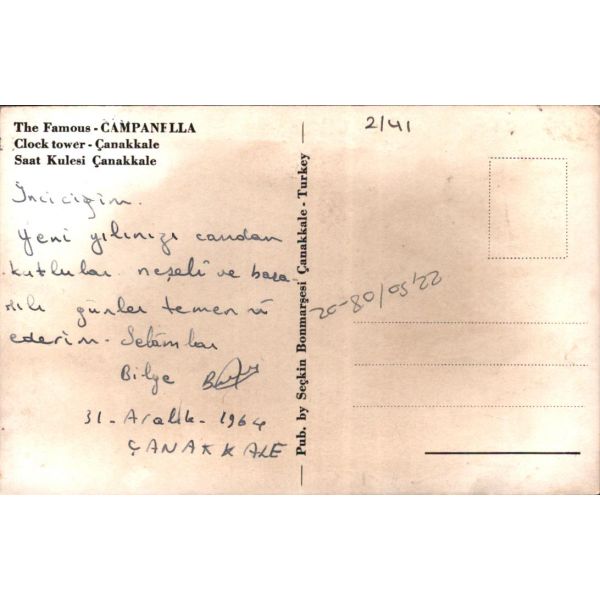 The Famous - CAMPANELLA
Clock tower - Çanakkale
Saat Kulesi Çanakkale
İnciciğim.
Yeni yılınızı candan
kutlular. neşeli ve başa-
rılı günler temenni
ederim. Selâmlar
Bilge
31 - Aralık - 1964
ÇANAKKALE
Pub. by Seçkin Bonmarşesi Çanakkale - Turkey
2/41
20-80/05'22